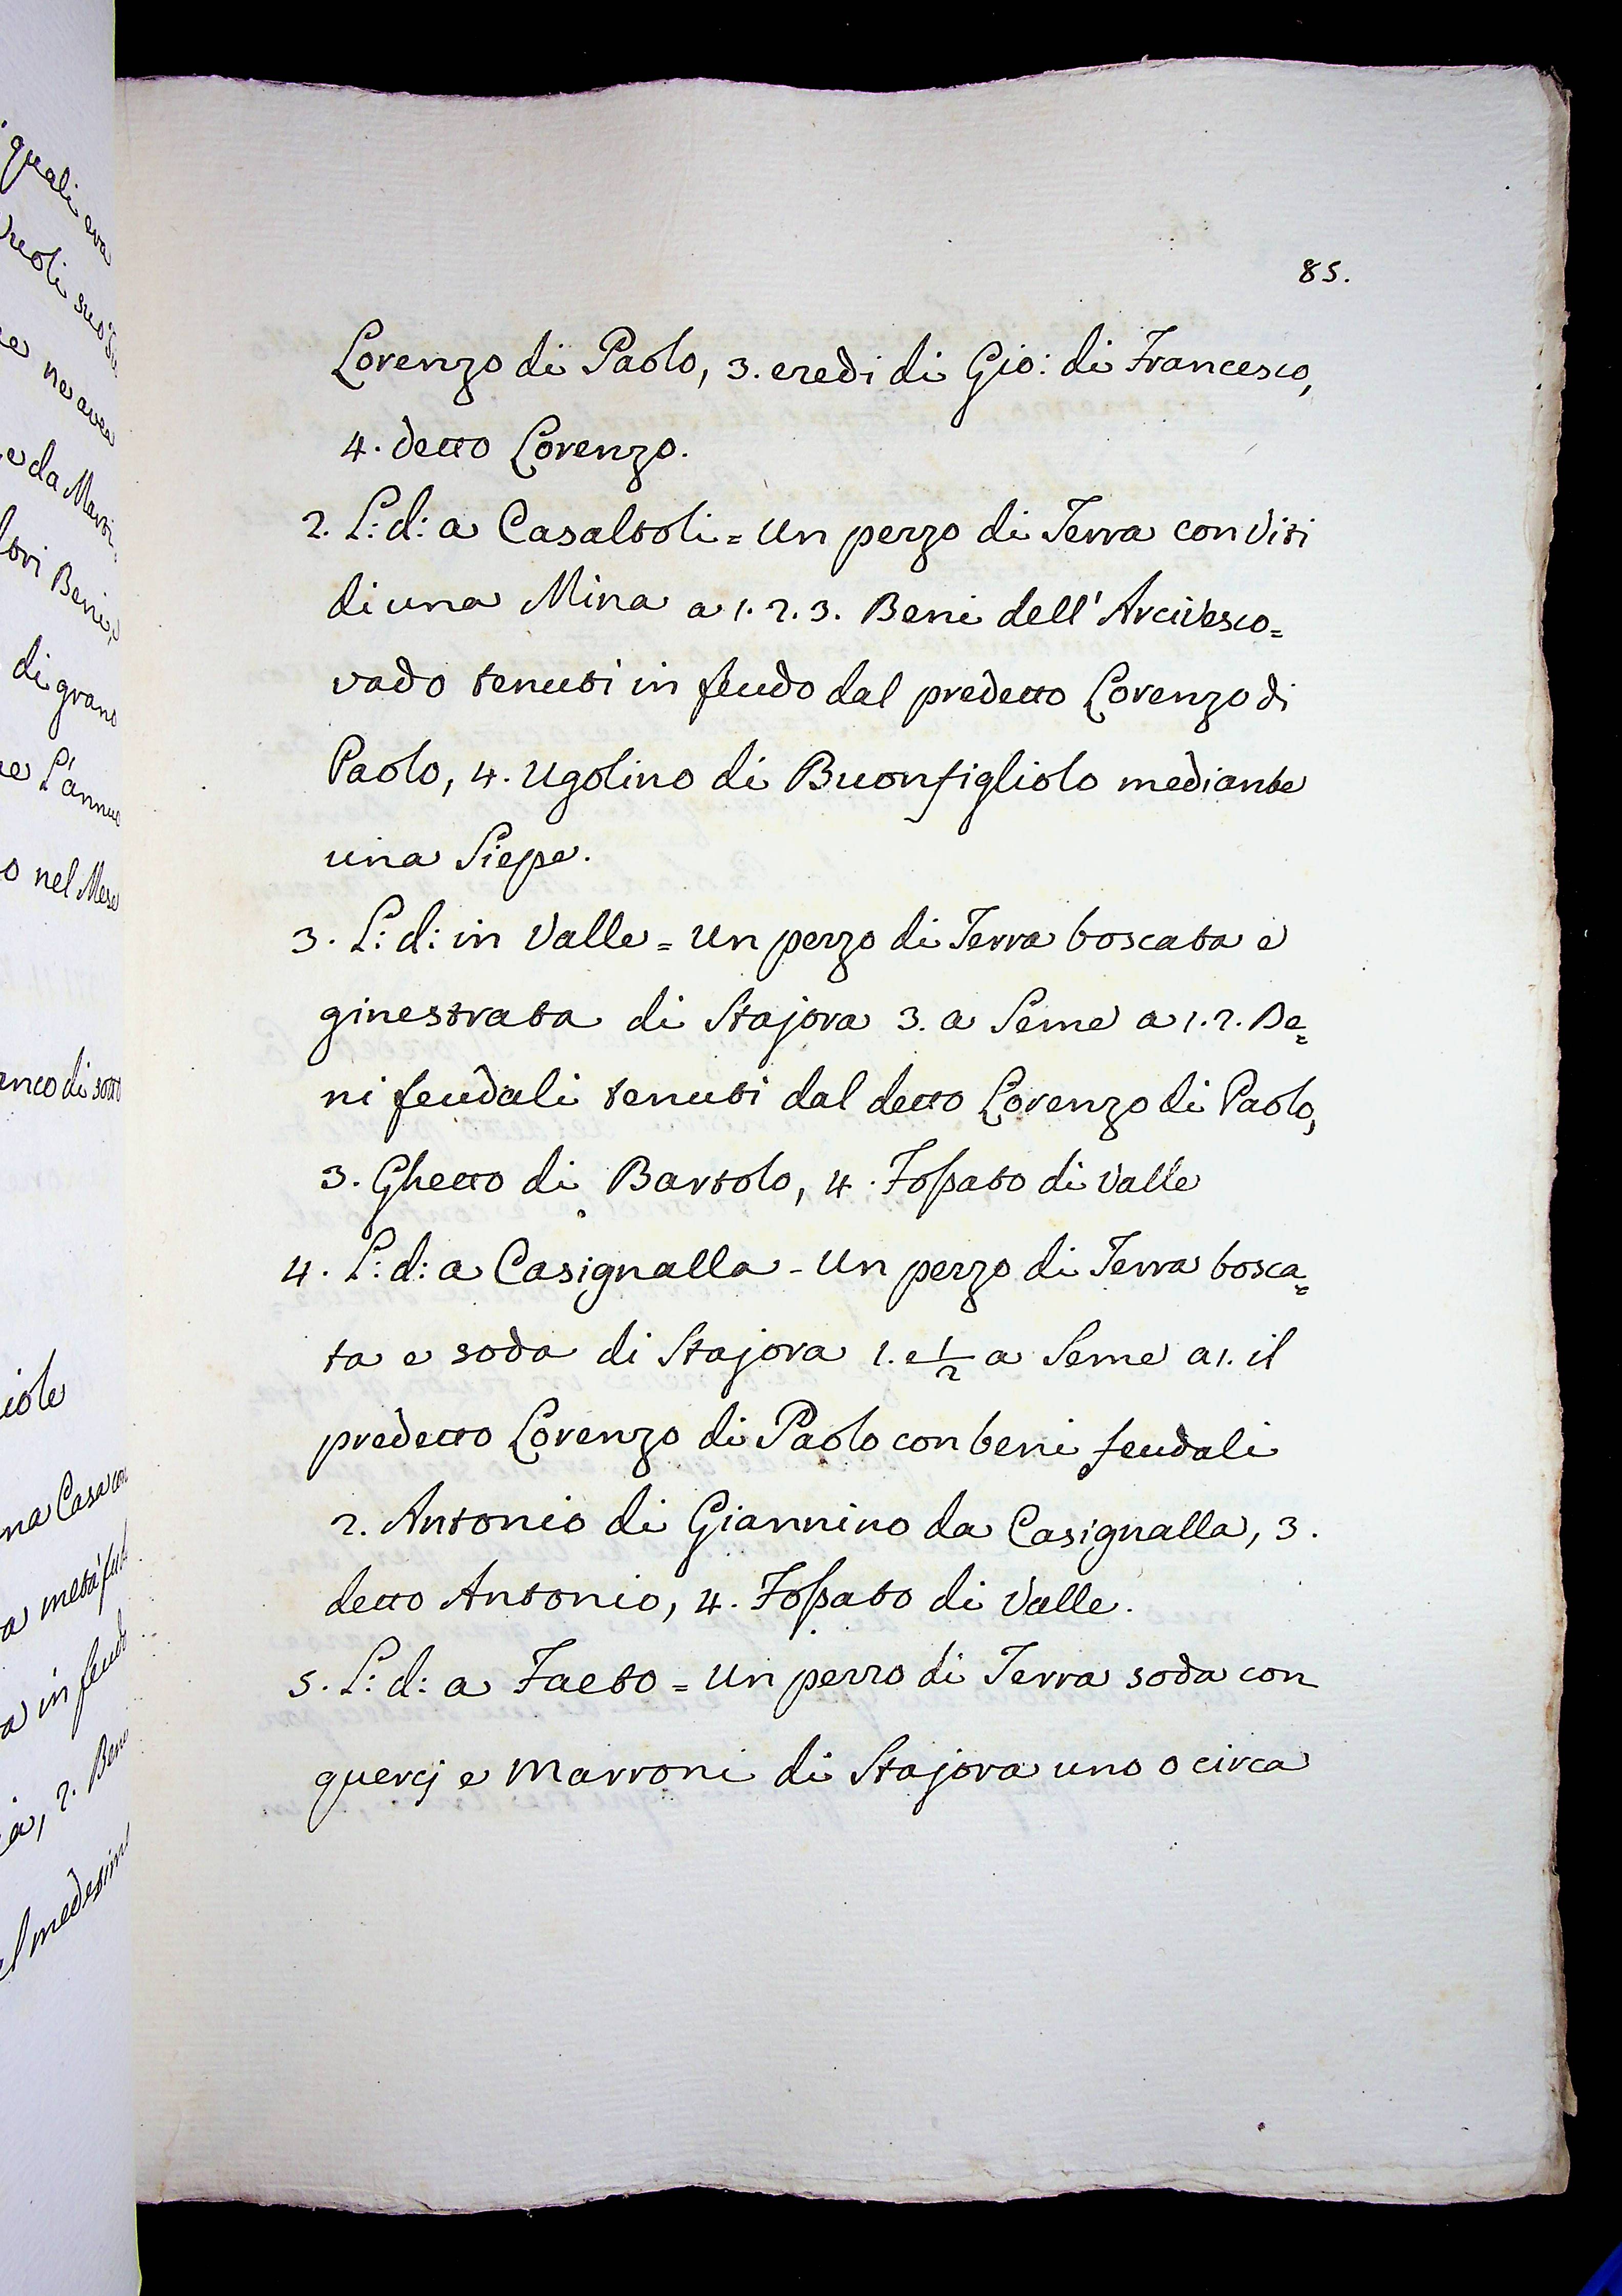 85.
Lorenzo di Paolo, 3. eredi di Gio: di Francesco,
4. detto Lorenzo.
2. L: d: a Casaltoli = Un pezzo di Terra con Viti
di una Mina a 1. 2. 3. Beni dell' Arcivesco=
vado tenuti in feudo dal predetto Lorenzo di
Paolo, 4. Ugolino di Buonfigliolo mediante
una Siepe.
3. L: d: in Valle = Un pezzo di Terra boscata e
ginestrata di Stajora 3. a Seme a 1. 2. Be=
ni feudali tenuti dal detto Lorenzo di Paolo,
3. Ghetto di Bartolo, 4. Fossato di Valle
4. L: d: a Casignalla - Un pezzo di Terra bosca=
ta e soda di Stajora 1. e 1/2 a Seme a 1. il
predetto Lorenzo di Paolo con beni feudali
2. Antonio di Giannino da Casignalla, 3.
detto Antonio, 4. Fossato di Valle.
5. L: d: a Faeto = Un pezzo di Terra soda con
quercj e Marroni di Stajora uno o circa
quali era
ne avea
e da
Beni,
di grano
e L'annuo
o nel Mese
di sotto
na Casa con
a metà
a in feudo
2. Beni